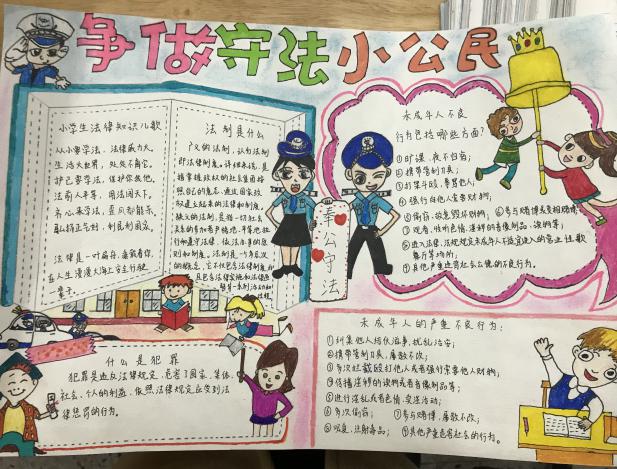 争做守法小公民
小学生法律知识儿歌
从小要学法,法律威力大。
生活大世界,处处不离它。
护己要学法,保护你我他。
法前人平等,用法闯天下。
弘扬正气时,利民利国家。
法律是一叶扁舟,满载着你
在人生漫漫大海上安全行驶
法制是什么
广义的法制,认为法制
即法律制度。详细来说,是
指掌握政权的社会集团按
照自己的意志、通过国家政
权建立起来的法律和制度。
狭义的法制,是指一切社会
关系的参加者严格地、平等地执
行和遵守法律,依法办事的原
则和制度。法制是一个多层次
的概念,它不仅包含法律制度
奉公守法
未成年人不良
行为包括哪些方面?
①旷课、夜不归宿;
②携带管制刀具;
③打架斗殴、辱骂他人;
④强行向他人索要财物;
⑤偷窃、故意毁坏财物;
⑥参与赌博或变相赌博;
⑦观看、收听色情、淫秽的音像制品、读物等;
⑧进入法律、法规规定未成年人不适宜进入的营业性歌
舞厅等场所;
⑨其他严重违背社会公德的不良行为。
什么是犯罪
犯罪是违反法律规定、危害了国家、集体、
社会、个人的利益、依照法律规定应受到法
律惩罚的行为。
未成年人的严重不良行为:
①纠集他人结伙滋事,扰乱治安;
②携带管制刀具,屡教不改;
③多次拦截殴打他人或者强行索要他人财物;
④传播淫秽的读物或者音像制品等;
⑤进行淫乱或者色情、卖淫活动;
⑥多次偷窃;
⑦参与赌博,屡教不改;
⑧吸食、注射毒品;
⑨其他严重危害社会的行为。